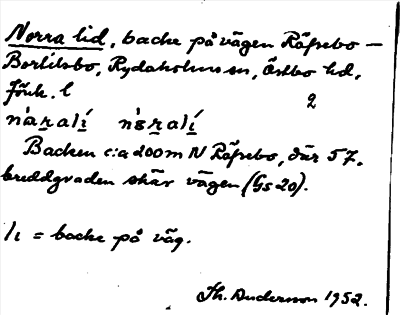 Norra lid, backe på vägen Räfsebo —
Borlitsbo, Rydaholms sn, Östbo hd,
Jönk. l
2
Backen c:a 200 m N Räfsebo, där 57.
breddgraden skär vägen (Gs 20).
li = backe på väg.
Th. Anderson 1952.